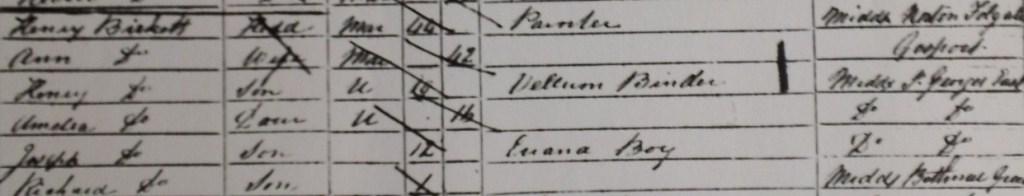 Henry Birkett Head Mar 44 Painter Middx Norton Folgate
Ann Do Wife Mar 42 Gosport
Henry Do Son U 19 Vellum Binder Middx St Georges East
Amelia Do Daur U 14 Do Do
Joseph Do Son 12 Errand Boy Do Do
Richard Do Son Middx Bethnal Green